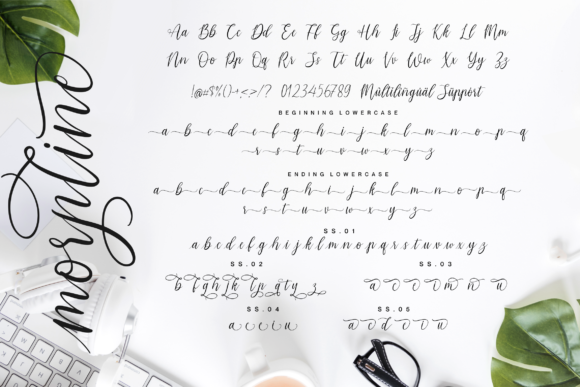 morntine
Aa Bb Cc Dd Ee Ff Gg Hh Ii Jj Kk Ll Mm
Nn Oo Pp Qq Rr Ss Tt Uu Vv Ww Xx Yy Zz
!@#$%()-+<>/? 0123456789 Mültïlïngüäl Süppört
BEGINNING LOWERCASE
a b c d e f g h i j k l m n o p q
r s t u v w x y z
ENDING LOWERCASE
a b c d e f g h i j k l m n o p q
r s t u v w x y z
SS.01
a b c d e f g h i j k l m n o p q r s t u v w x y z
SS.02
SS.03
SS.04
SS.05